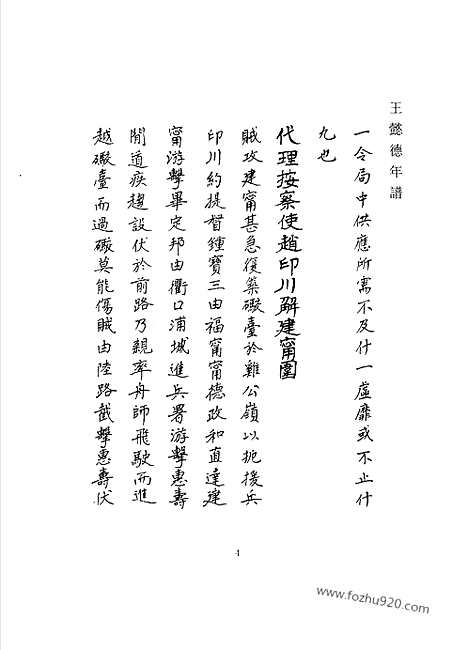 王懿德年譜
一令局中供應所需不及什一虛靡或不止什
九也
代理按察使趙印川解建甯圍
賊攻建甯甚急復築礮臺於雞公嶺以扼援兵
印川約提督鍾寶三由福甯甯德政和直達建
甯游擊畢定邦由衢口浦城進兵署游擊惠壽
間道疾趨設伏於前路乃親率舟師飛駛而進
越礮臺而過礮莫能傷賊由陸路截擊惠壽伏
4
www.fozhu920.com